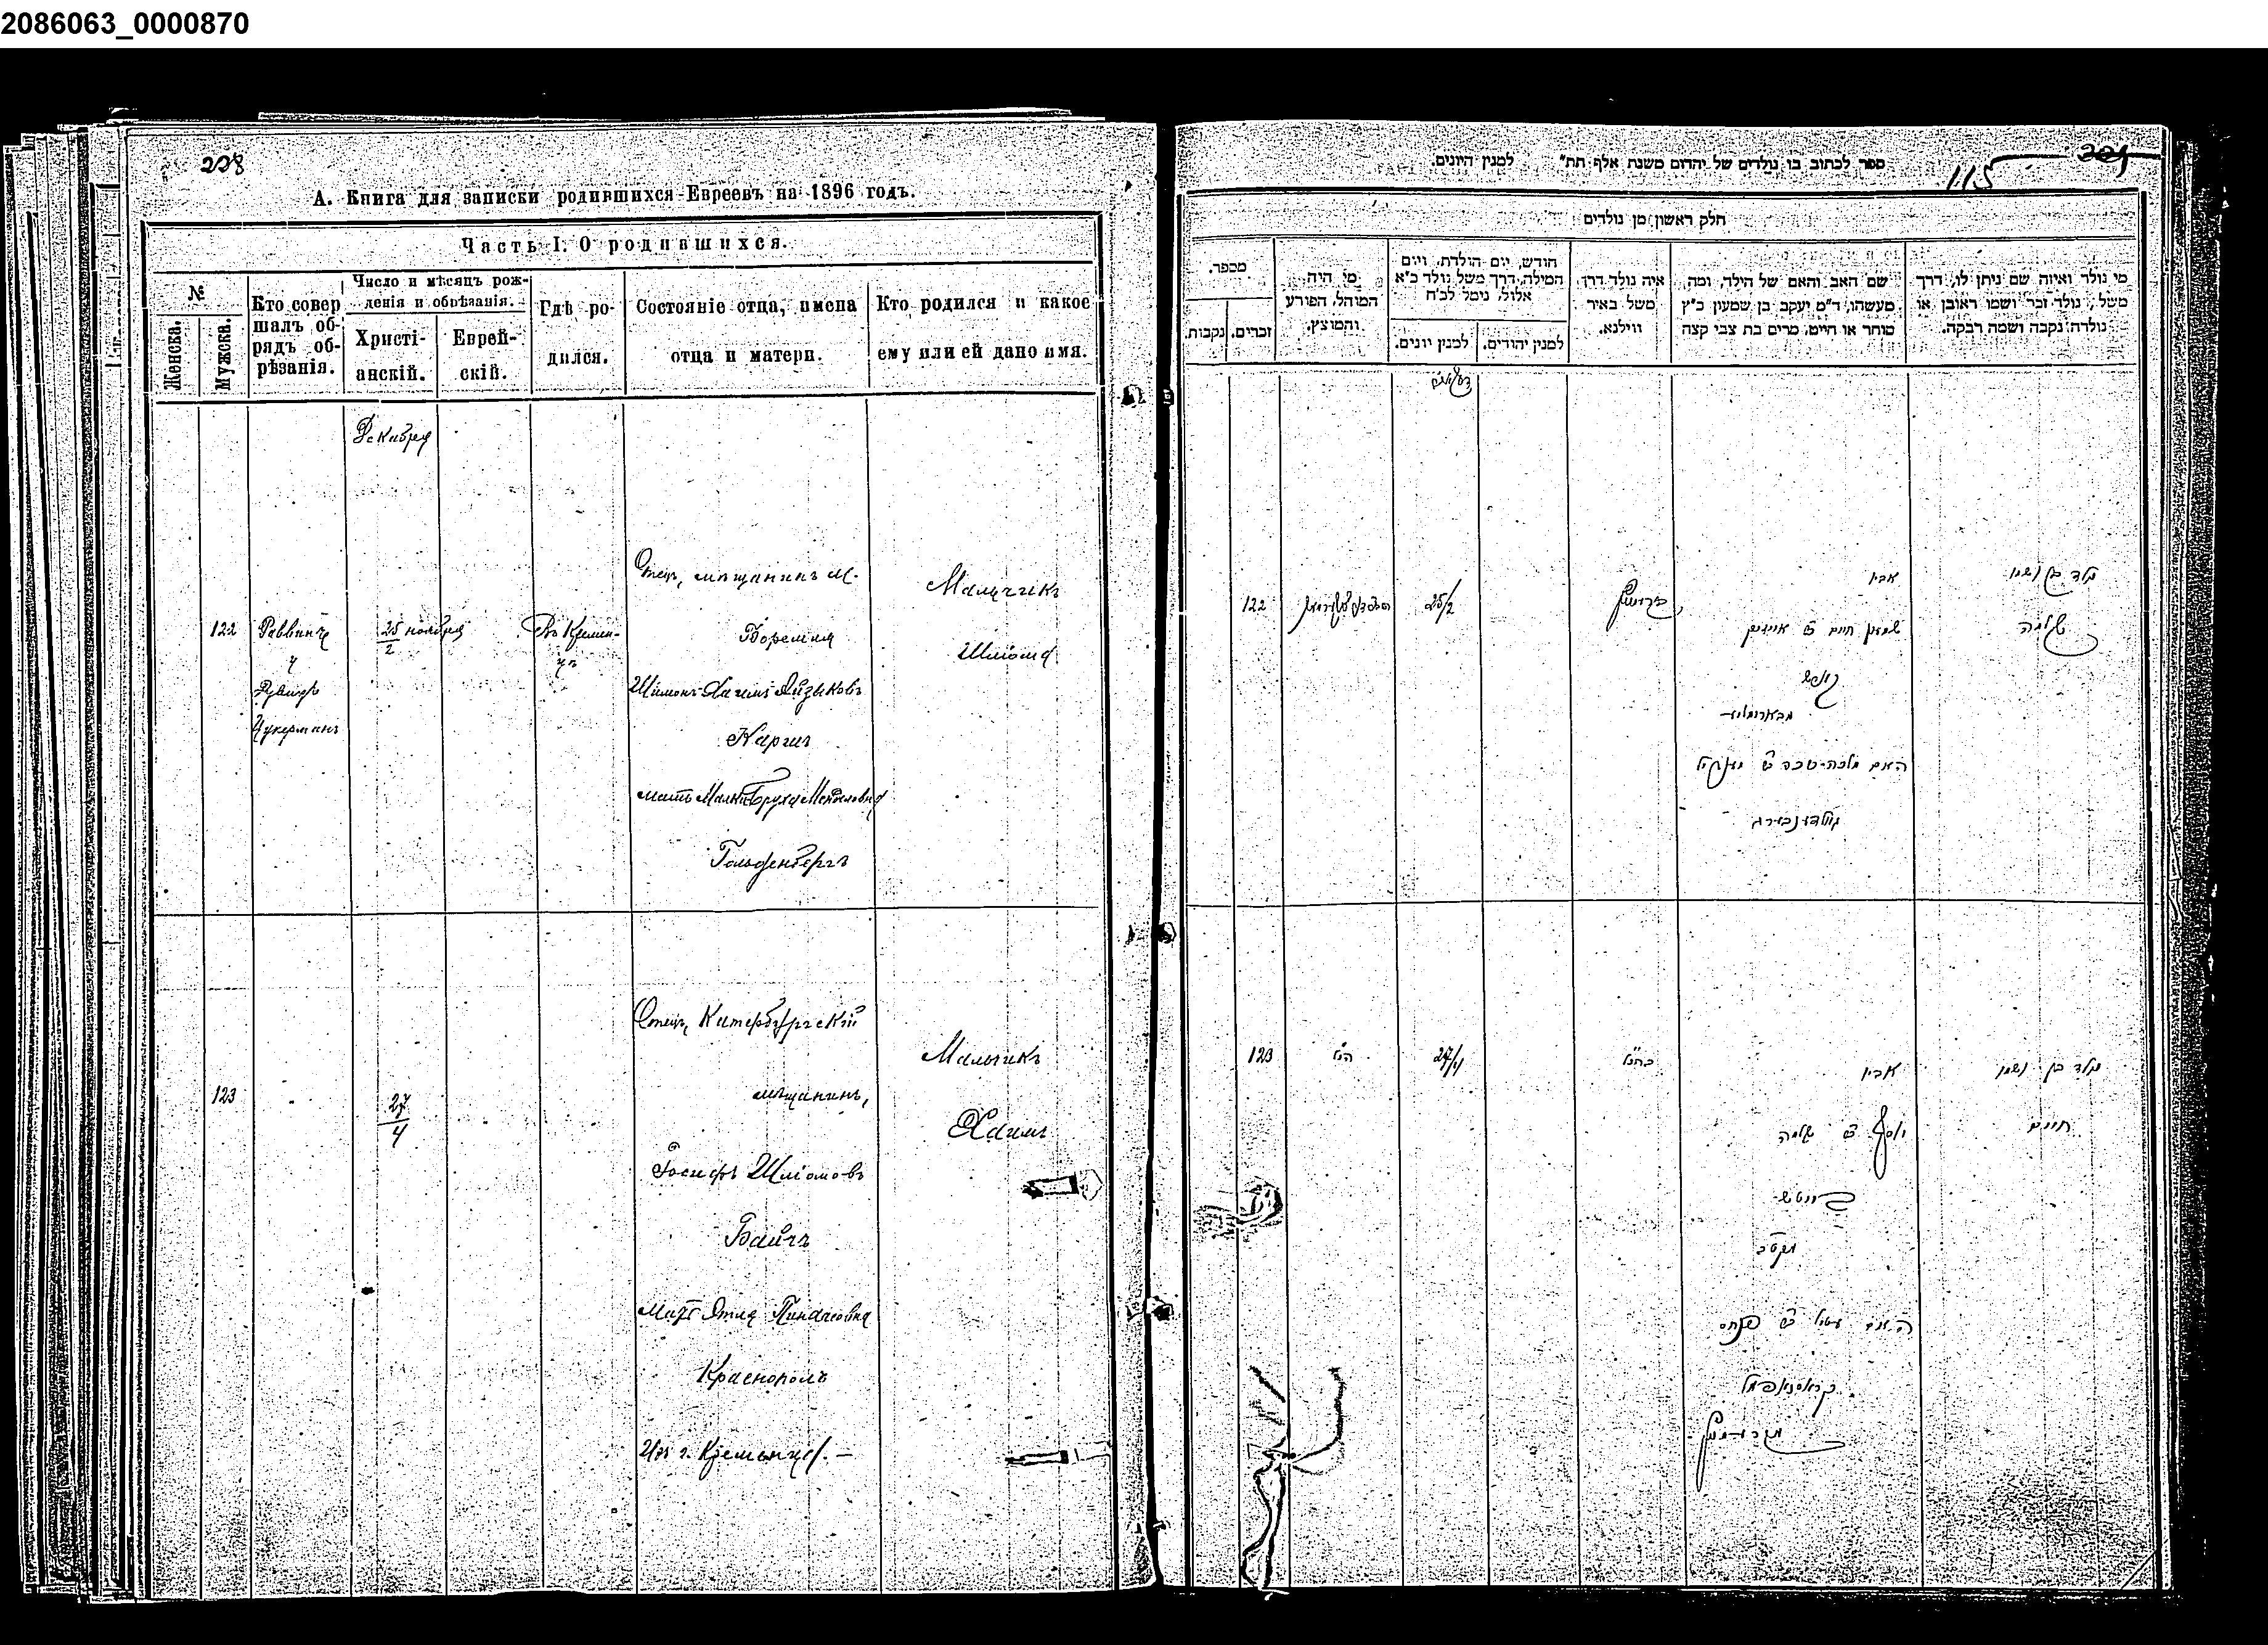 2086063_0000870
238
А. Книга для записки родившихся Евреевъ на 1896 годъ.
Часть I. О родившихся.
№
Женска.
Мужска.
Кто совер
шалъ об-
рядъ об-
рѣзанія.
Число и мѣсяцъ рож-
денія и обрѣзанія.
Христі-
анскій.
Еврей-
скій.
Гдѣ ро-
дился.
Состояніе отца, имена
отца и матери.
Кто родился и какое
ему или ей дано имя.
Декабря
122
Раввинъ
и
Цукерманъ
25 ноября
2
Въ Кремен-
цѣ
Отецъ, мѣщанинъ м.
Боремля
Шимонъ-Хаимъ Айзыковъ
Каргиъ
мать Малка-Бруха Менделовна
Гольденбергъ
Мальчикъ
Шліома
123
27
4
Отецъ, Катербургскій
мѣщанинъ,
Іосифъ Шліомовъ
Байчъ
Мать Этля Пинхасовна
Краснополь
Изъ г. Кременца. —
Мальчикъ
Хаимъ
ספר לכתוב בו נולדים של יהדום משנת אלף תת״ למנין היונים.
115
חלק ראשון מן נולדים
מספר.
נקבות.
זכרים.
מי היה
המוהל, הפורע
והמוצץ.
חודש, יום הולדת, ויום
המילה, דרך משל נולד כ״א
אלול, נימל לכ״ח
למנין יונים.
למנין יהודים.
איה נולד דרך
משל באיר
ווילנא.
שם האב והאם של הילד, ומה
מעשהו, ד״מ יעקב בן שמעון כ״ץ
סוחר או חייט, מרים בת צבי קצה
מי נולד ואיזה שם ניתן לו, דרך
משל, נולד זכר ושמו ראובן או
נולדה נקבה ושמה רבקה.
122
25/2
אביו
שמעון חיים ב״ר אייזיק
האם מלכה-ברכה ב״ר מענדיל
גולדענבערג
נולד בן ושמו
שלמה
123
הנ״ל
27/4
כהנ״ל
אביו
יוסף ב״ר שלמה
האם עטיל ב״ר פנחס
קראסנאפאל
נולד בן ושמו
חיים